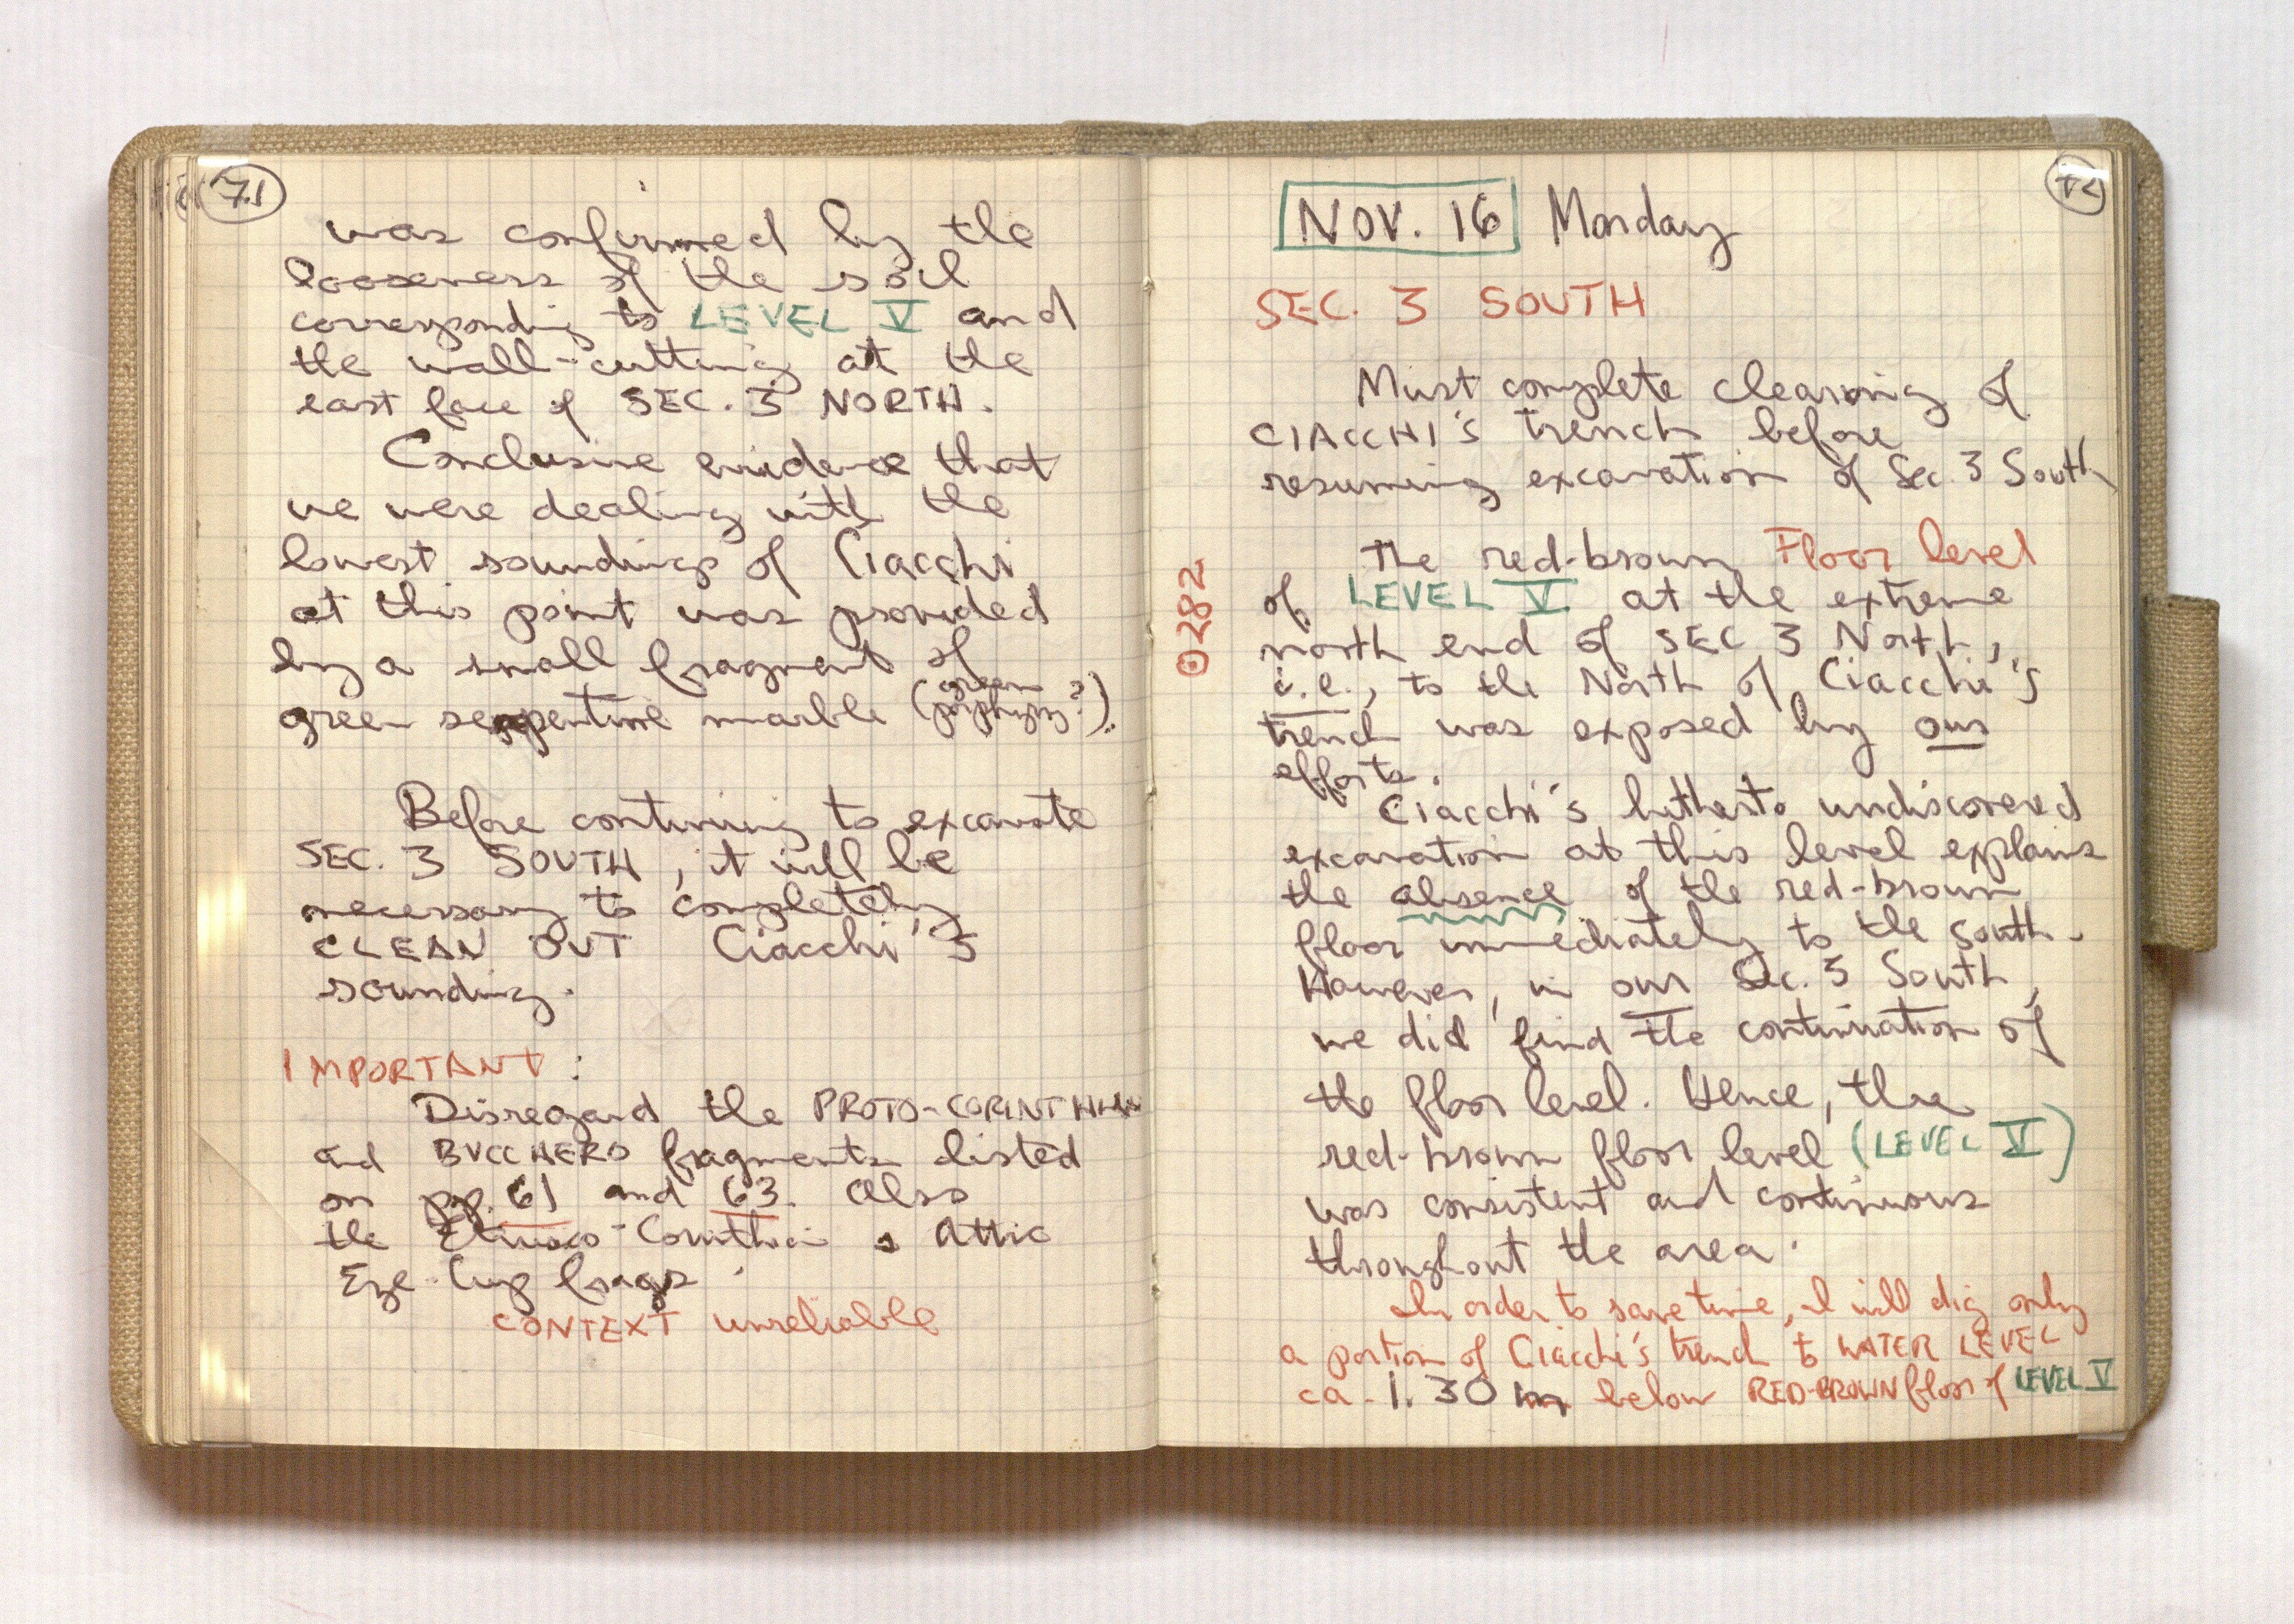 71
was confirmed by the
looseness of the soil
corresponding to LEVEL V and
the wall-cutting at the
east face of SEC. 3 NORTH.
Conclusive evidence that
we were dealing with the
lowest soundings of Ciacchi
at this point was provided
by a small fragment of
green serpentine marble (green porphyry?).
Before continuing to excavate
SEC. 3 SOUTH, it will be
necessary to completely
CLEAN OUT Ciacchi's
sounding.
IMPORTANT:
Disregard the PROTO-CORINTHIAN
and BUCCHERO fragments listed
on pp. 61 and 63. Also
the Etrusco-Corinthian & Attic
Eye-Cup frags.
CONTEXT unreliable
72
NOV. 16 Monday
SEC. 3 SOUTH
Must complete clearing of
CIACCHI's trench before
resuming excavation of Sec. 3 South
0282
The red-brown Floor level
of LEVEL V at the extreme
north end of SEC 3 North,
i.e., to the North of Ciacchi's
trench was exposed by our
efforts.
Ciacchi's hitherto undiscovered
excavation at this level explains
the absence of the red-brown
floor immediately to the south.
However, in our Sec. 3 South,
we did find the continuation of
the floor level. Hence, the
red-brown floor level (LEVEL V)
was consistent and continuous
throughout the area.
In order to save time, I will dig only
a portion of Ciacchi's trench to WATER LEVEL
ca. 1.30 m below RED-BROWN floor of LEVEL V